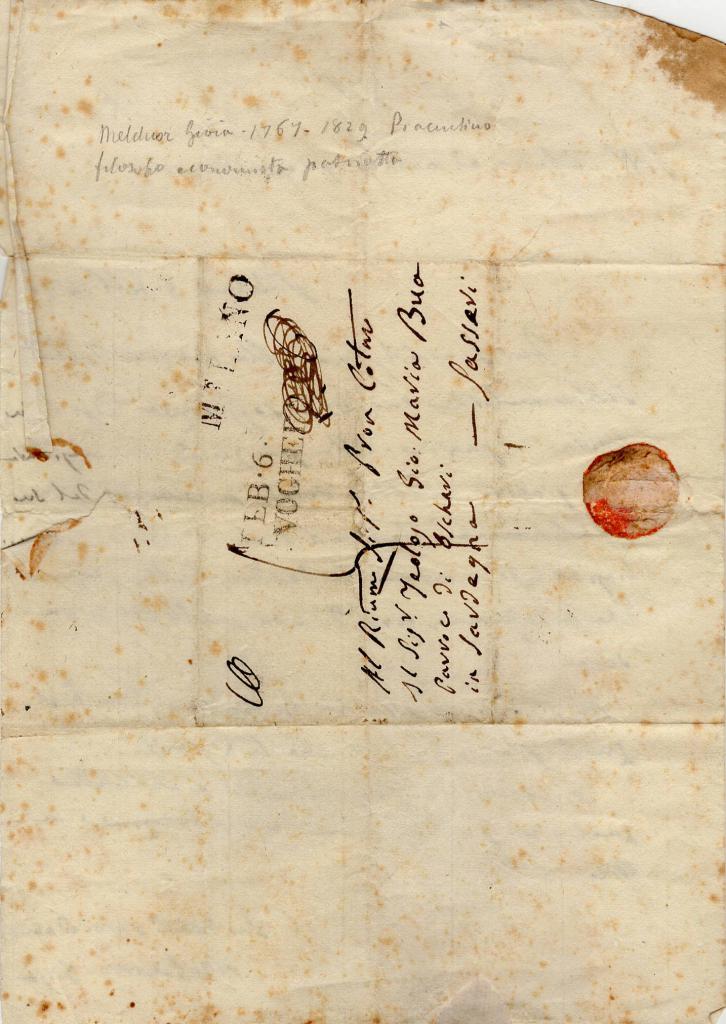 Melchior Gioia - 1767 - 1829 Piacentino
filosofo economista patriotta
MILANO
FEB. 6.
VOGHERA
Al Rivmo Sigr. Pron Colmo
Il Sigr Teologo Gio: Maria Bua
Parroco di Oschiri
in Sardegna — Sassari